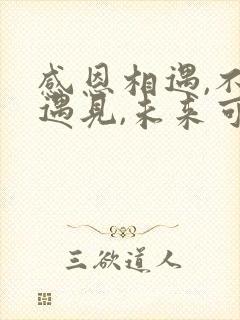 感恩相遇,不
遇见,未来可
三欲道人